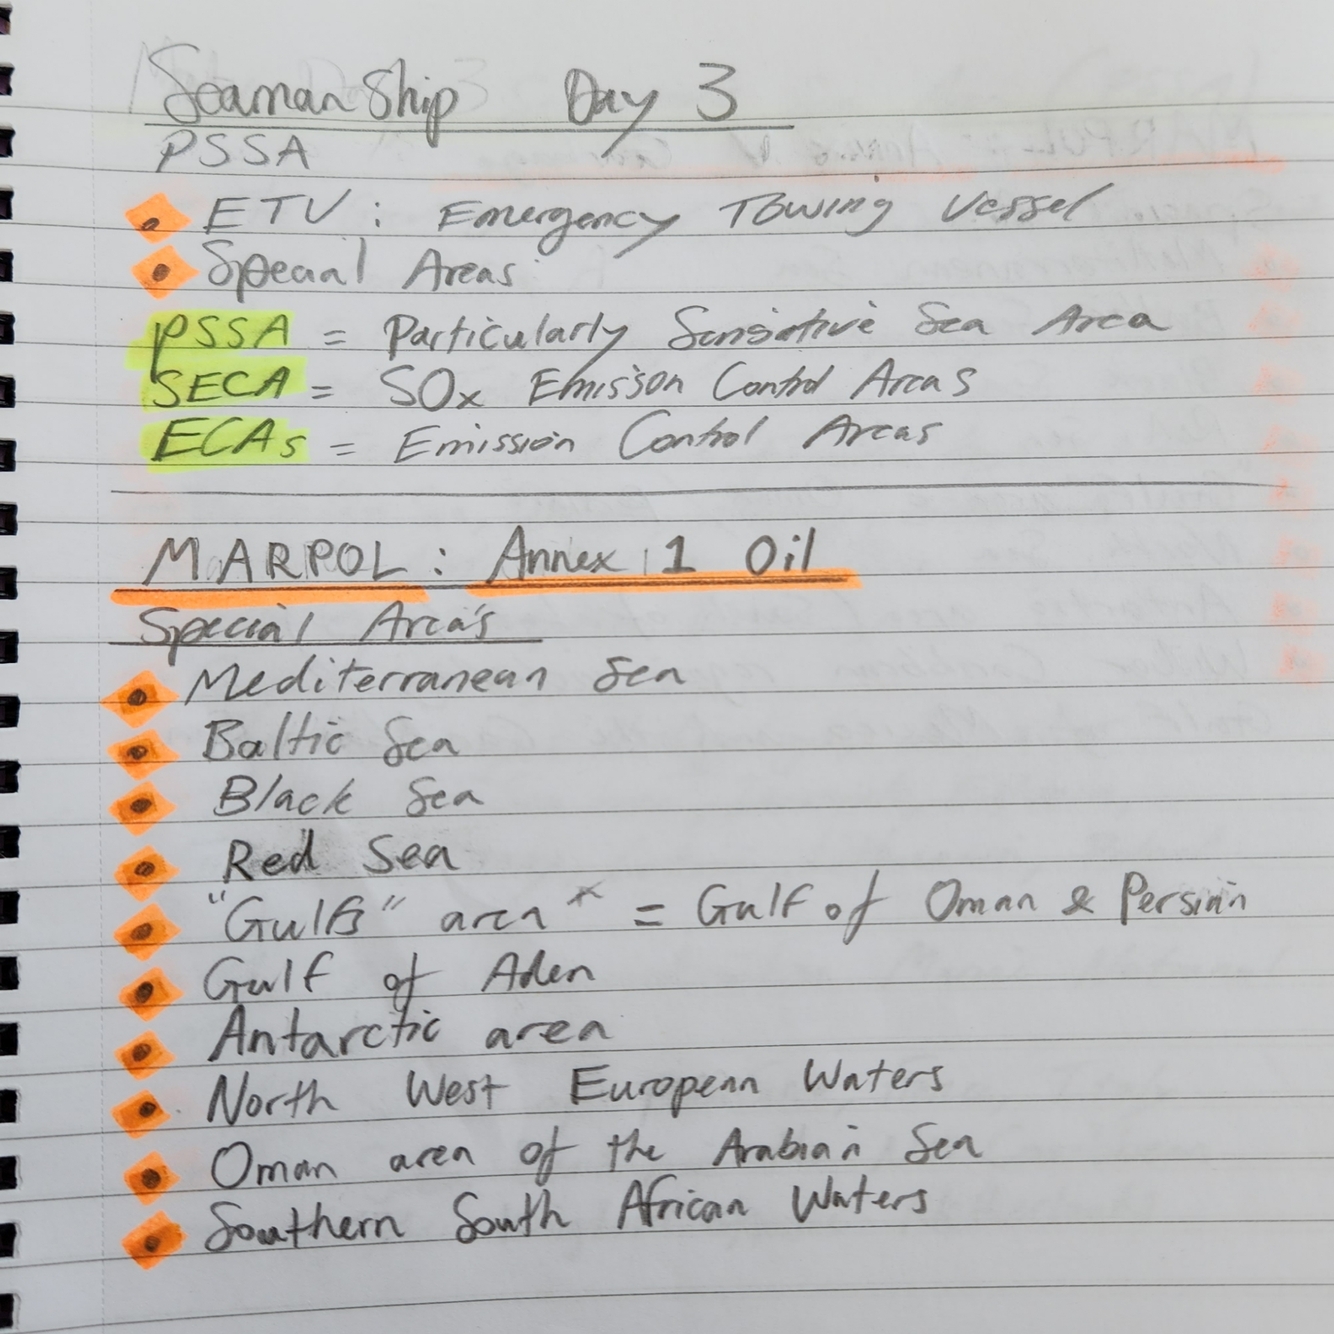 Seamanship Day 3
PSSA
• ETV : Emergency Towing Vessel
• Special Areas
PSSA = Particularly Sensiative Sea Area
SECA = SOx Emisson Control Areas
ECAs = Emission Control Areas
MARPOL : Annex 1 Oil
Special Area's
• Mediterranean Sea
• Baltic Sea
• Black Sea
• Red Sea
• "Gulfs" area* = Gulf of Oman & Persian
• Gulf of Aden
• Antarctic area
• North West European Waters
• Oman area of the Arabian Sea
• Southern South African Waters